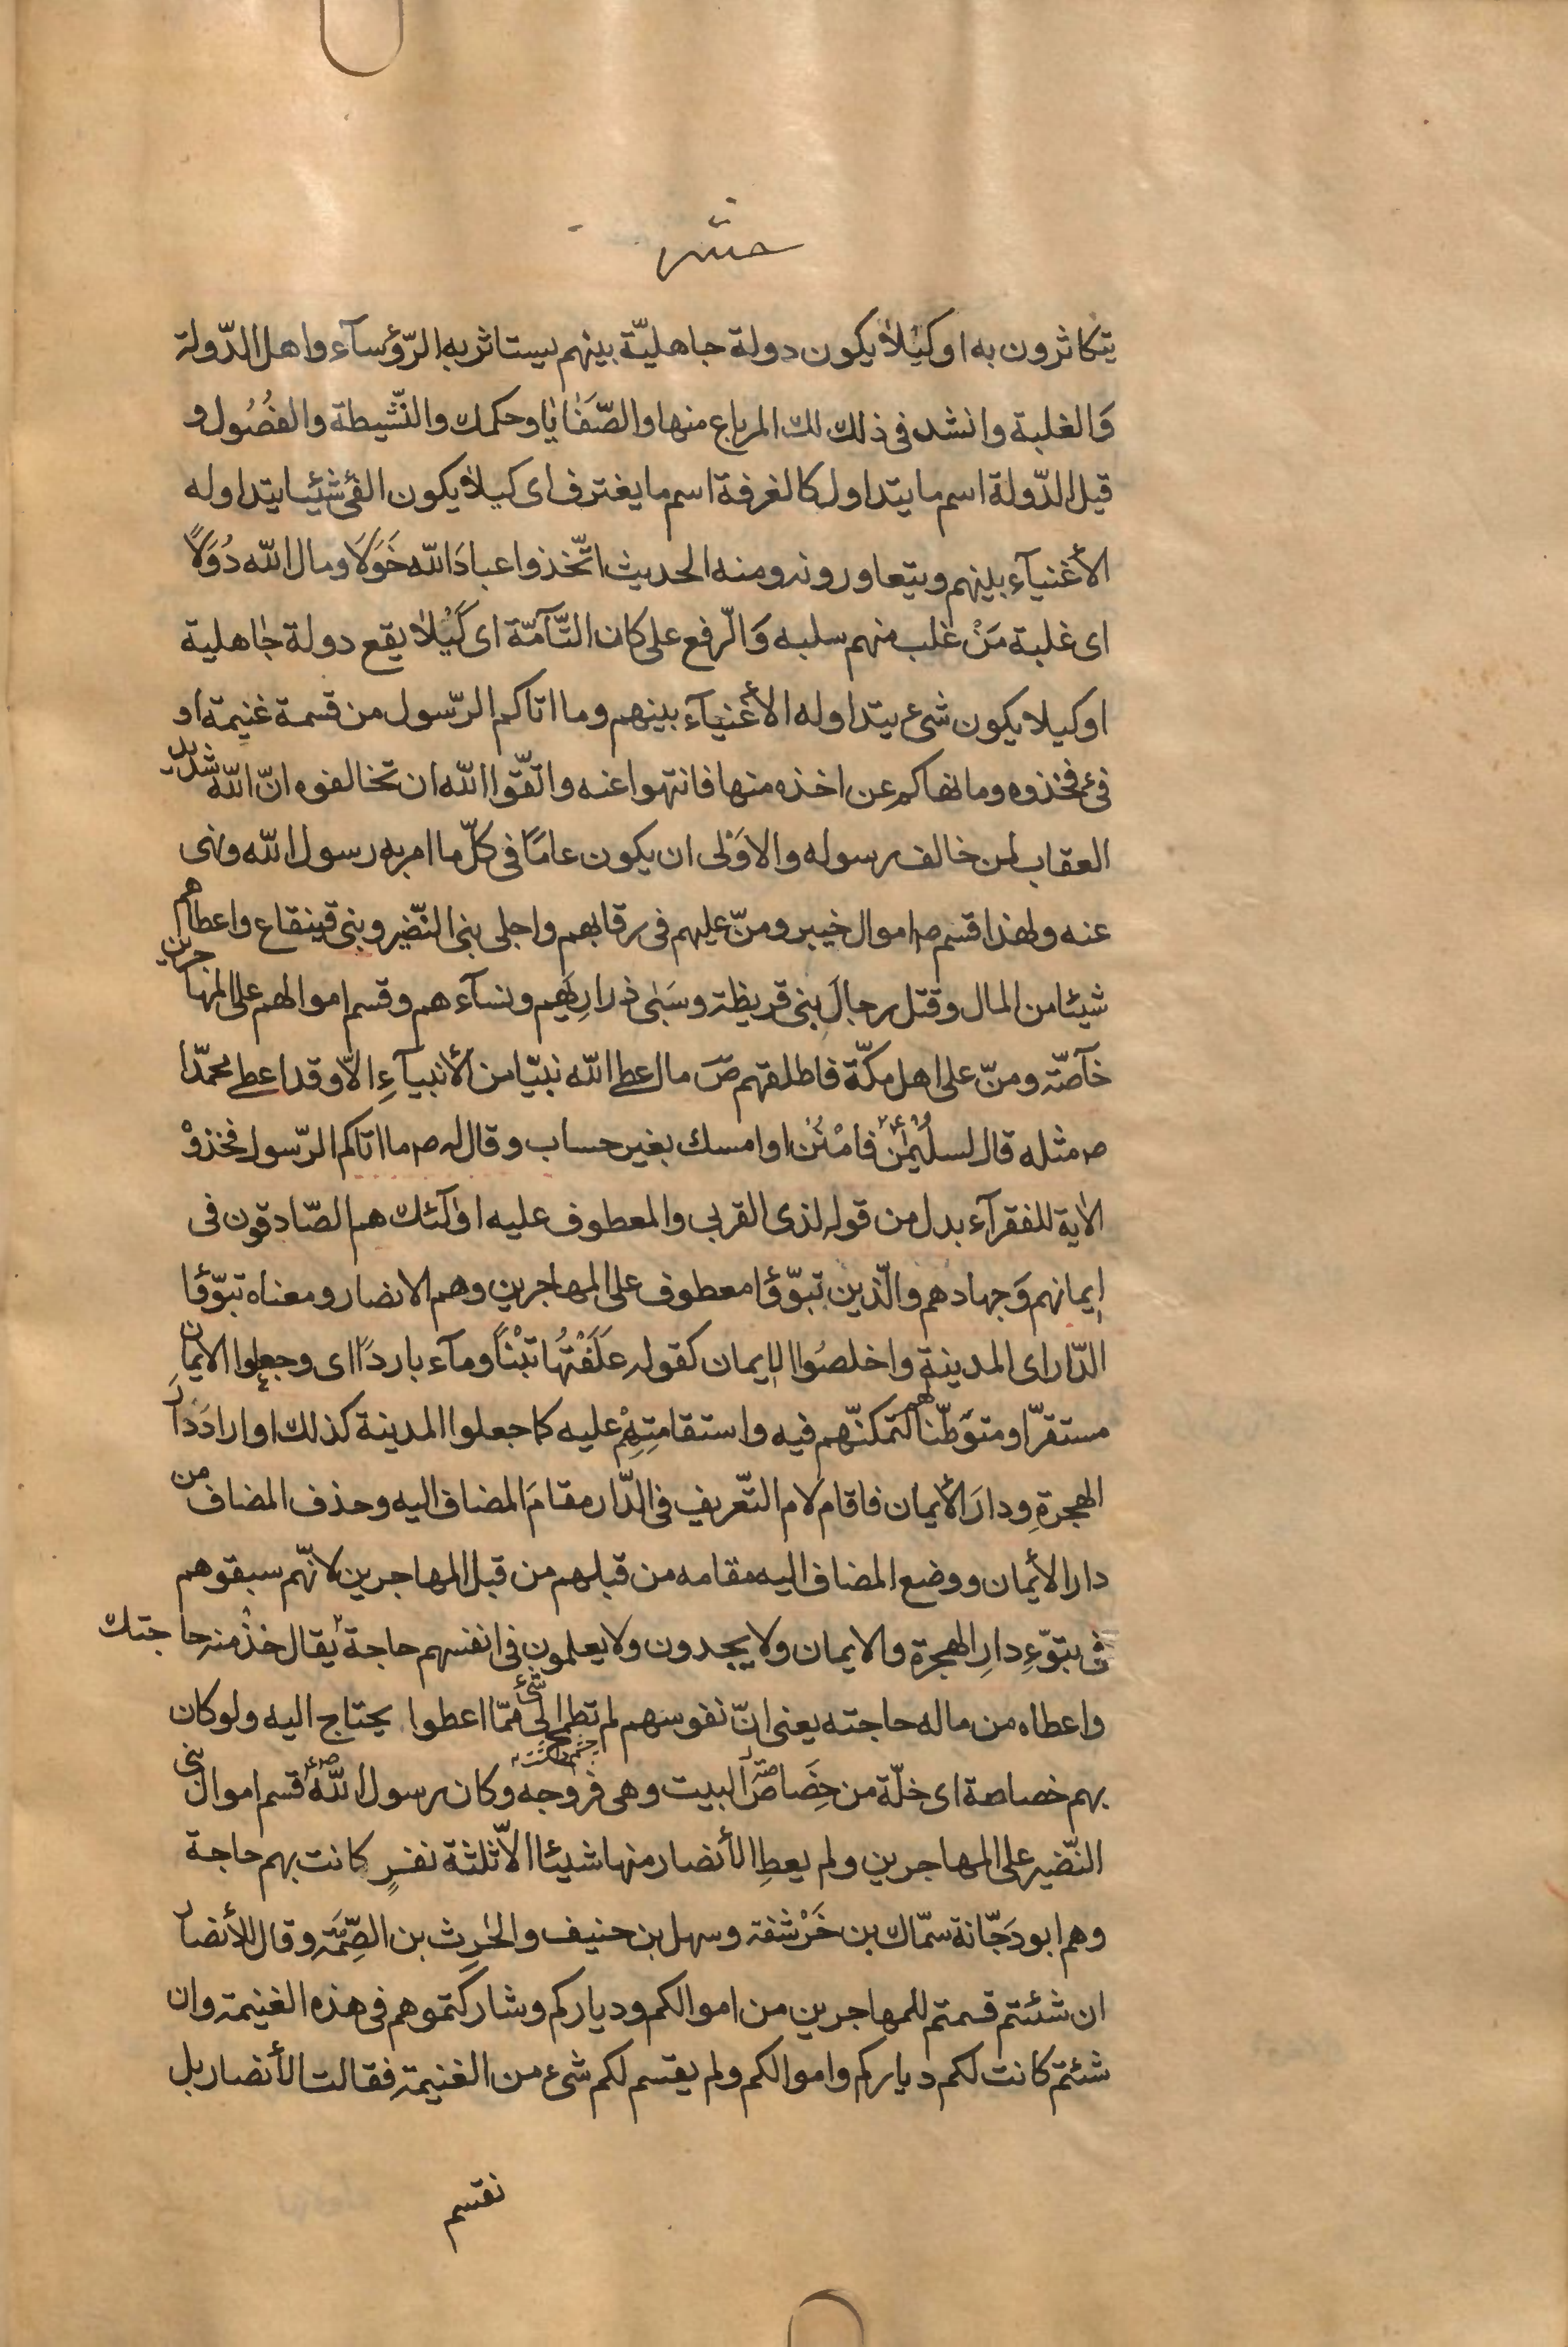 حشر
يتكاثرون به او كَيْلا يكون دولة جاهليّة بينهم يستاثر به الرّؤسآء واهل الدّولة
وَالغلبة وانشد فى ذلك لك المرباع منها والصَّفَايا وحكمك والنّشيطة والفضُول و
قيل الدّولة اسم ما يتداول كالغرفة اسم ما يغترف اى كيلا يكون الفئ شيئا يتداوله
الأغنيآء بينهم ويتعاورونه ومنه الحديث اتّخذوا عبادَ الله خَوَلًا ومال الله دُوَلًا
اى غلبة مَنْ غلب منهم سلبه وَالرّفع على كان التّآمّة اى كَيْلا يقع دولة جاهلية
او كيلا يكون شىء يتداوله الأغنيآء بينهم وما اتاكم الرّسول من قسمة غنيمة او
فىء فخذوه وما نهاكم عن اخذه منها فانتهوا عنه واتّقوا الله ان تخالفوه انّ الله شديد
العقاب لمن خالف رسوله والاوَلى ان يكون عامًا فى كلّ ما امر به رسول الله ونهى
عنه ولهذا قسم ص اموال خيبر ومنّ عليهم فى رقابهم واجلى بنى النّضير وبنى قينقاع واعطاهم
شيئا من المال وقتل رجالَ بنى قريظة وسَبى ذراريهم ونسآءهم وقسم اموالهم على المهاجرين
خآصّة ومنّ على اهل مكّة فاطلقهم صَ ما اعطا الله نبيّا من الأنبيآءِ الّا وقد اعطى محمّدا
ص مثله قال لسليمن فامْنُن او امسك بغير حساب وقال له ص ما اتاكم الرّسول فخذوْ
الاية للفقرآء بدل من قوله لذى القربى والمعطوف عليه اولئك هم الصّادقون فى
إيمانهم وَجهادهم والّذين تبوّؤا معطوف على المهاجرين وهم الانصار ومعناه تبوّؤا
الدّار اى المدينة واخلصُوا الإيمان كقوله عَلَفْتُها تبْنًا ومآء باردًا اى وجعلوا الايمان
مستقرّا ومتوَطّنا لهم لتمكنّهم فيه واستقامتِهِمْ عليه كما جعلوا المدينة كذلك او ارادَ دارَ
الهجرةِ ودارَ الأيمان فاقام لام التّعريف فى الدّار مقامَ المضاف اليه وحذف المضاف من
دار الأيمان ووضع المضاف اليه مقامه من قبلهم من قبل المهاجرين لانّهم سبقوهم
فى تبوّءِ دارِ الهجرة والايمان ولا يجدون ولا يعلمون فى انفسهم حاجة يقال خذْ منه حاجتك
واعطاه من ماله حاجته يعنى انّ نفوسهم لم تطمح الى شئ ممّا اعطوا يحتاج اليه ولو كان
بهم خصاصة اى خلّة من خِصَاصَ البيت وهى فروجه وكان رسول الله ص قسم اموال بنى
النّضير على المهاجرين ولم يعطِ الأنصار منها شيئا الّا ثلثة نفرٍ كانت بهم حاجة
وهم ابو دَجّانة سمّاك بن خَرْشفة وسهل بن حنيف والحٰرِث بن الصِّمَّة وقال للأنصار
ان شئتم قسمتم للمهاجرين من اموالكم ودياركم وشاركتموهم فى هذه الغنيمة وان
شئتم كانت لكم دياركم واموالكم ولم يقسم لكم شىء من الغنيمة فقالت الأنصار بل
نقسم